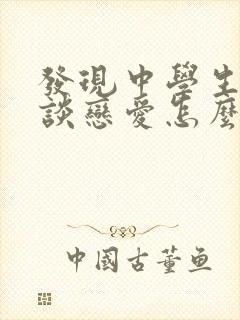 發現中學生
談戀愛怎麼
中國古董鱼